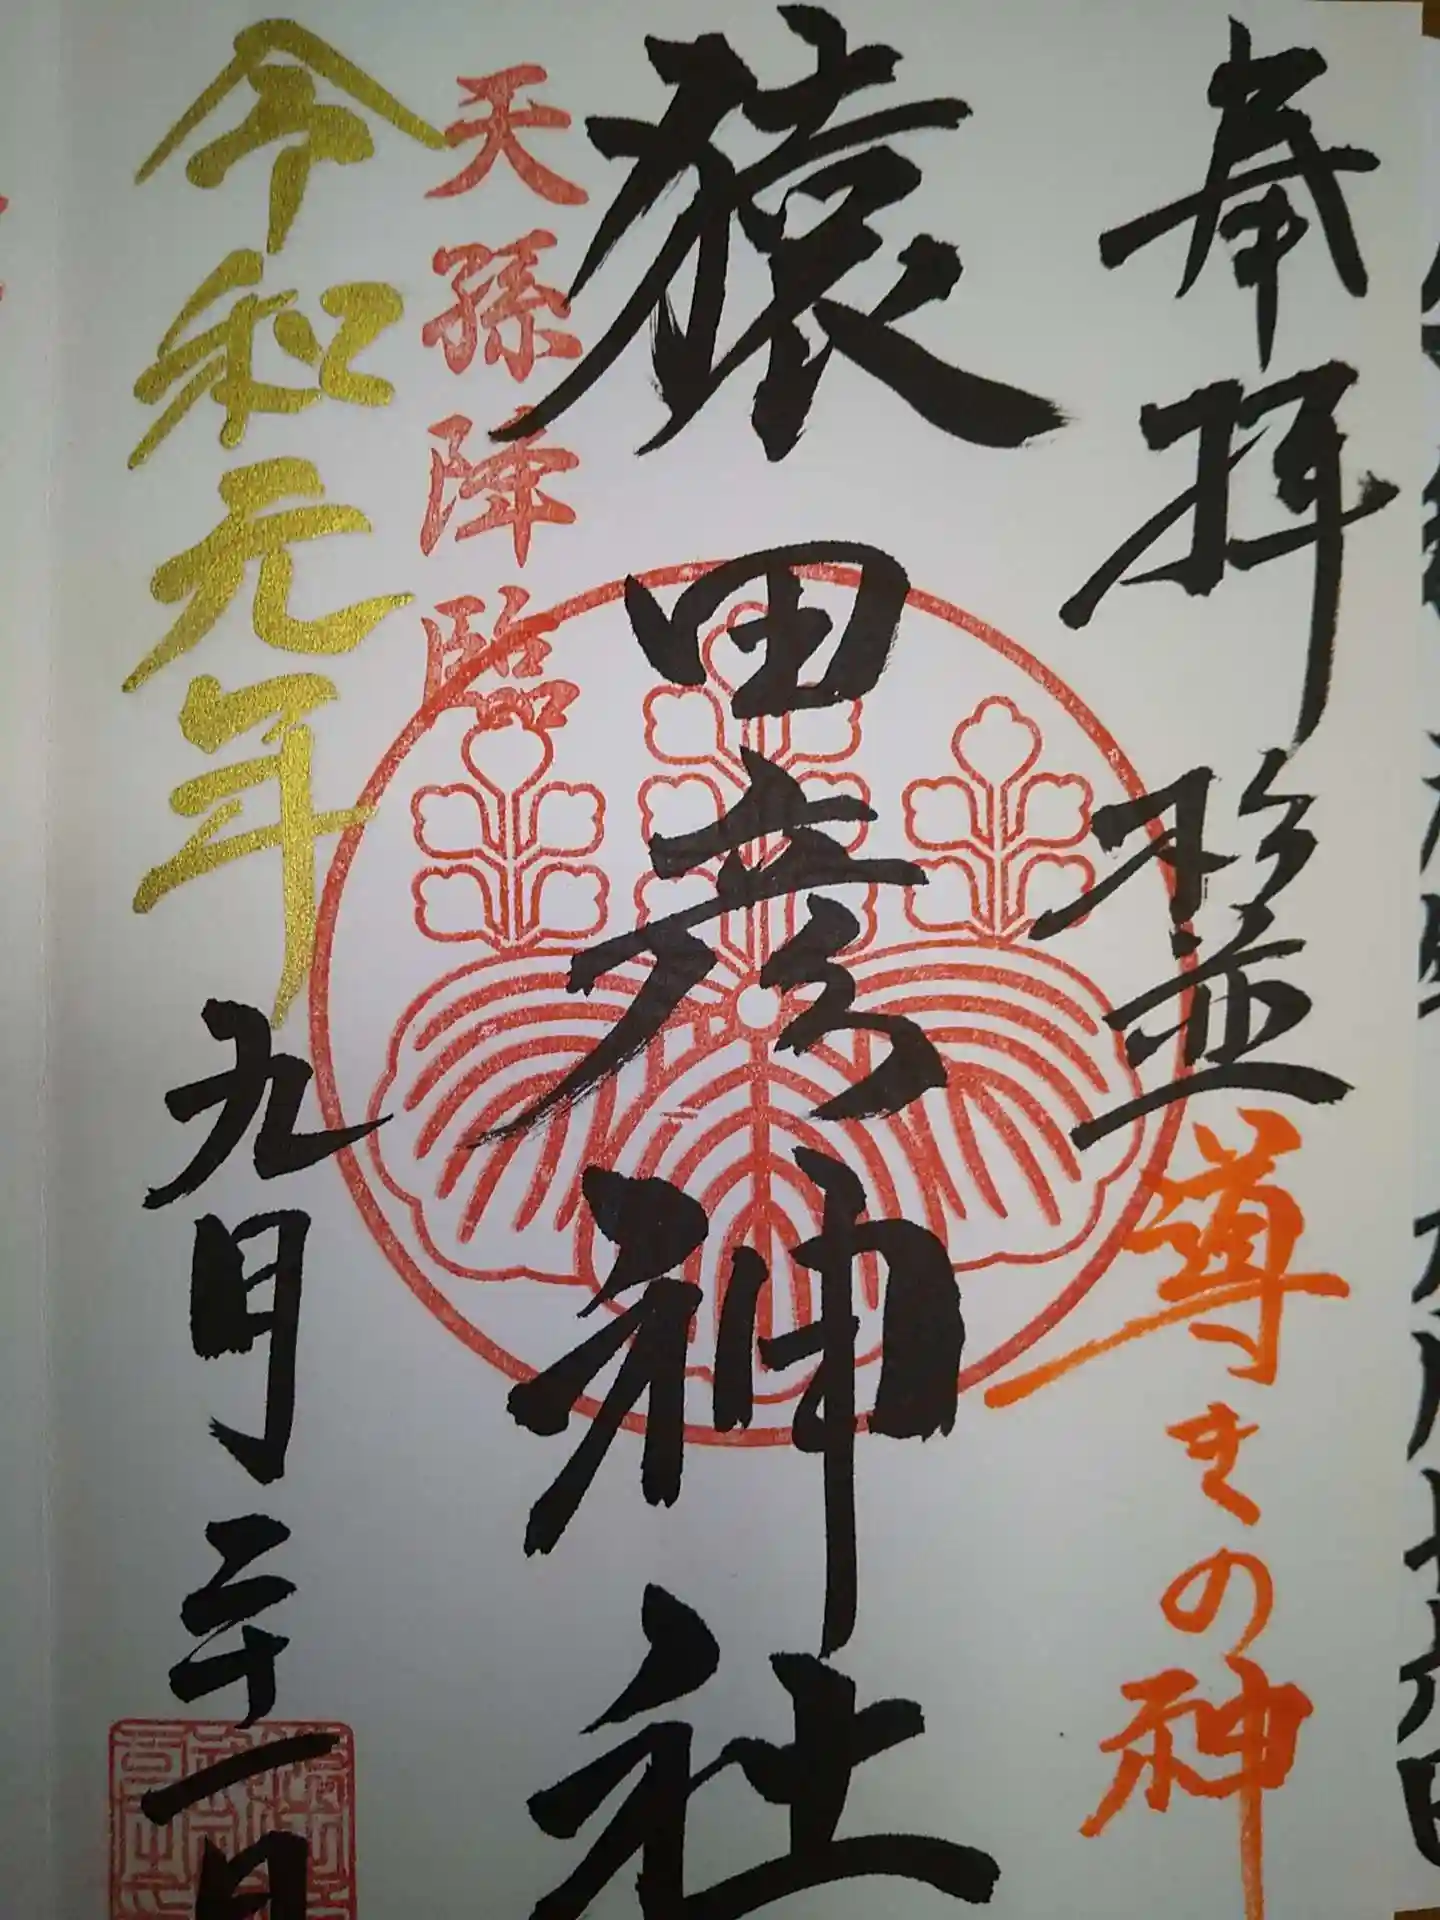 奉拝
導きの神
猿田彦神社
天孫降臨
令和元年九月二十一日